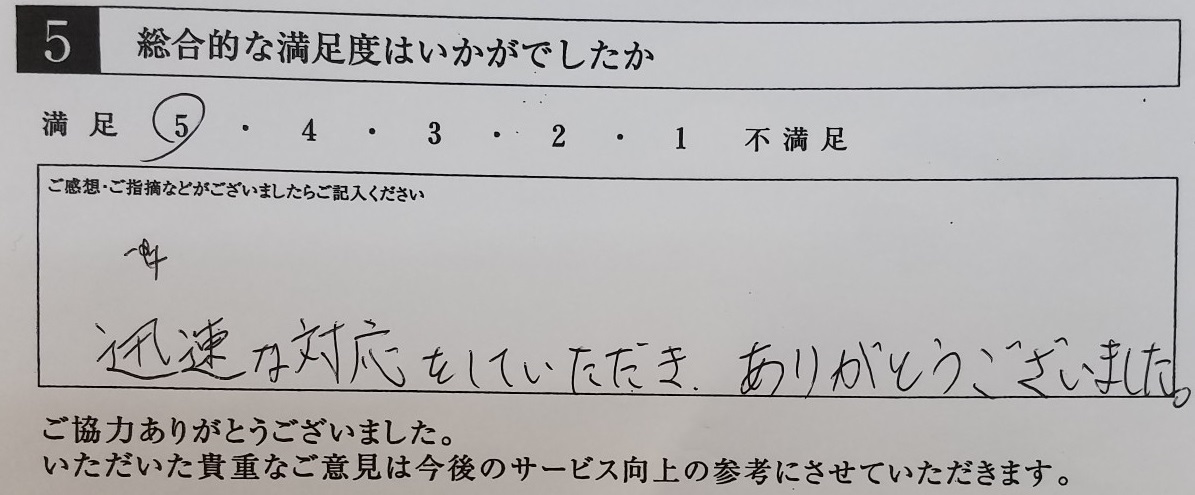 5 総合的な満足度はいかがでしたか
満足 5 ・ 4 ・ 3 ・ 2 ・ 1 不満足
ご感想・ご指摘などがございましたらご記入ください
迅速な対応をしていただき、ありがとうございました。
ご協力ありがとうございました。
いただいた貴重なご意見は今後のサービス向上の参考にさせていただきます。